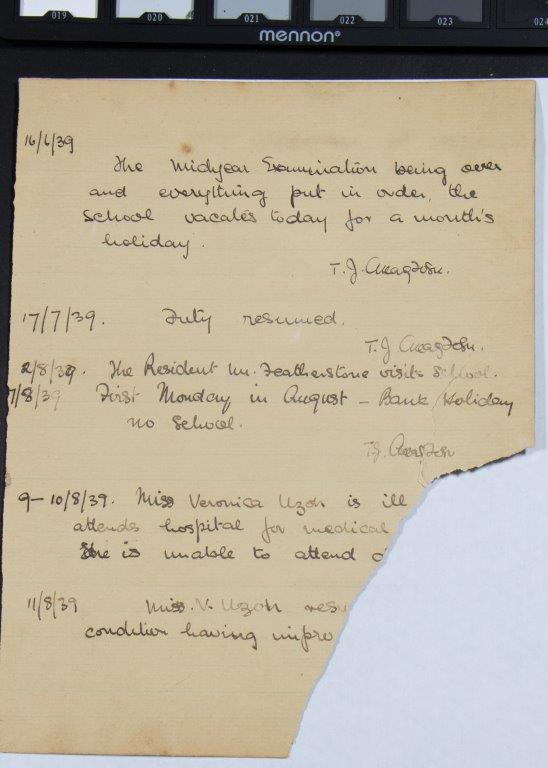 019 020 021 022 023 024
mennon®
16/6/39
The Midyear Examination being over
and everything put in order, the
school vacates today for a month's
holiday.
T. J.
17/7/39. Duty resumed.
T. J.
2/8/39. The Resident Mr. Featherstone visits school.
7/8/39 First Monday in August – Bank Holiday
no school.
T. J.
9–10/8/39. Miss Veronica Uzoh is ill
attends hospital for medical
She is unable to attend
11/8/39 Miss. V. Uzoh resu
condition having impro